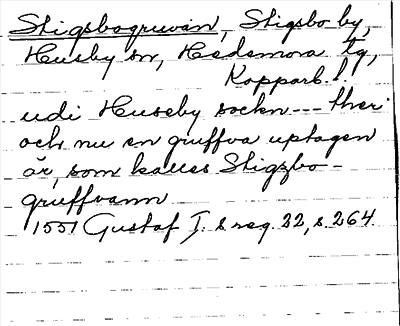 Stigsbogruvan, Stigsbo by,
Husby sn, Hedemora tg,
Kopparb. l.
udi Huseby sockn --- ther
och nu en gruffva uptagen
är, som kalles Stigzbo-
gruffvann
1551 Gustaf I:s reg. 22, s. 264.